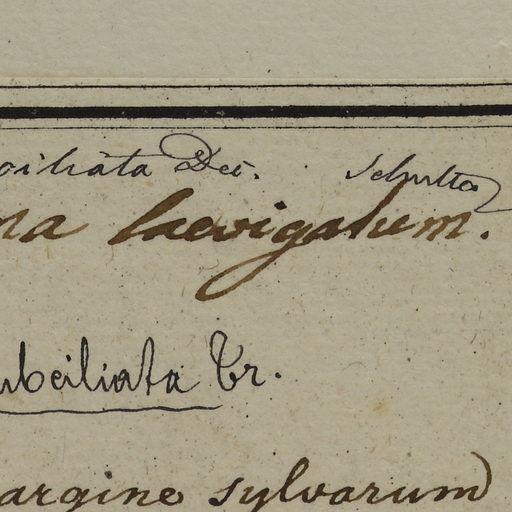 ciliata Dec. Schultes
na laevigatum.
ubciliata Tr.
argine sylvarum